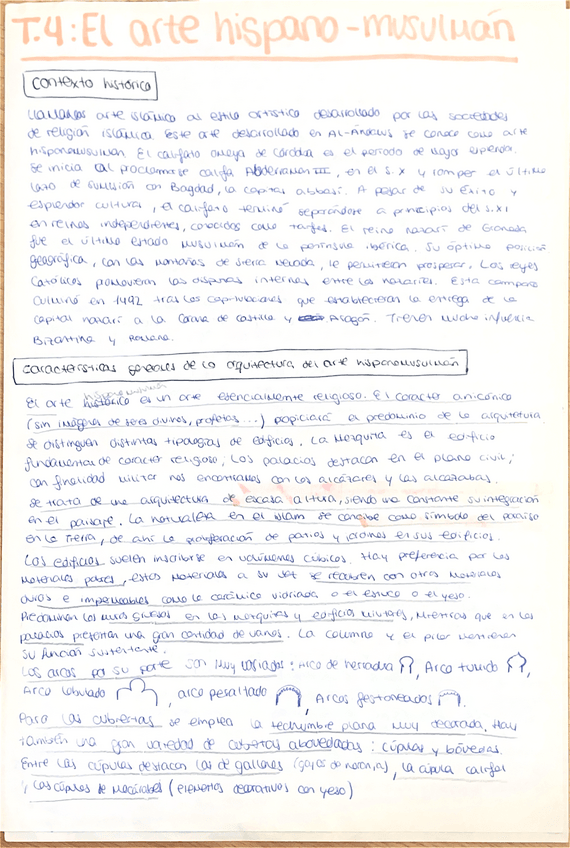 T.4: El arte hispano-musulmán
contexto histórico
Llamamos arte islámico al estilo artístico desarrollado por las sociedades
de religión islámica. Este arte desarrollado en Al-Ándalus se conoce como arte
hispanomusulman. El califato omeya de Córdoba es el periodo de mayor esplendor.
Se inicia al proclamarse califa Abderraman III, en el s.X y romper el último
lazo de sumisión con Bagdad, la capital abbasí. A pesar de su éxito y
esplendor cultural, el califato terminó separándose a principios del s.XI
en reinos independientes, conocidos como taifas. El reino nazarí de Granada
fue el último estado musulmán de la península ibérica. Su óptima posición
geográfica, con las montañas de Sierra Nevada, le permitieron prosperar. Los reyes
Católicos promovieron las disputas internas entre los nazaríes. Esta campaña
culminó en 1492 tras las capitulaciones que establecieron la entrega de la
capital nazarí a la Corona de Castilla y Aragón. Tienen mucha influencia
Bizantina y Romana.
Características generales de la arquitectura del arte hispanomusulmán
hispanomusulman
El arte histórico es un arte esencialmente religioso. El caracter anicónico
(sin imágenes de seres divinos, profetas...) propiciará el predominio de la arquitectura
se distinguen distintas tipologías de edificios. La mezquita es el edificio
fundamental de caracter religioso; los palacios destacan en el plano civil;
con finalidad militar nos encontramos con los alcázares y las alcazabas.
Se trata de una arquitectura de escasa altura, siendo una constante su integración
en el paisaje. La naturaleza en el islam se concibe como símbolo del paraíso
en la tierra, de ahí la proliferación de patios y jardines en sus edificios.
Los edificios suelen inscribirse en volúmenes cúbicos. Hay preferencia por los
materiales pobres, estos materiales a su vez se recubren con otros materiales
duros e impermeables como la cerámica vidriada o el estuco o el yeso.
Predominan los muros gruesos en las mezquitas y edificios militares, mientras que en los
palacios presentan una gran cantidad de vanos. La columna y el pilar mantienen
su función sustentante.
Los arcos por su parte son muy variados: Arco de herradura, Arco túmido,
Arco lobulado, arco peraltado, Arcos festoneados.
Para las cubiertas se emplea la techumbre plana muy decorada. Hay
también una gran variedad de cubiertas abovedadas: cúpulas y bóvedas.
Entre las cúpulas destacan las de gallones (gajos de naranja), la cúpula califal
y las cúpulas de mocárabes (elementos decorativos con yeso)